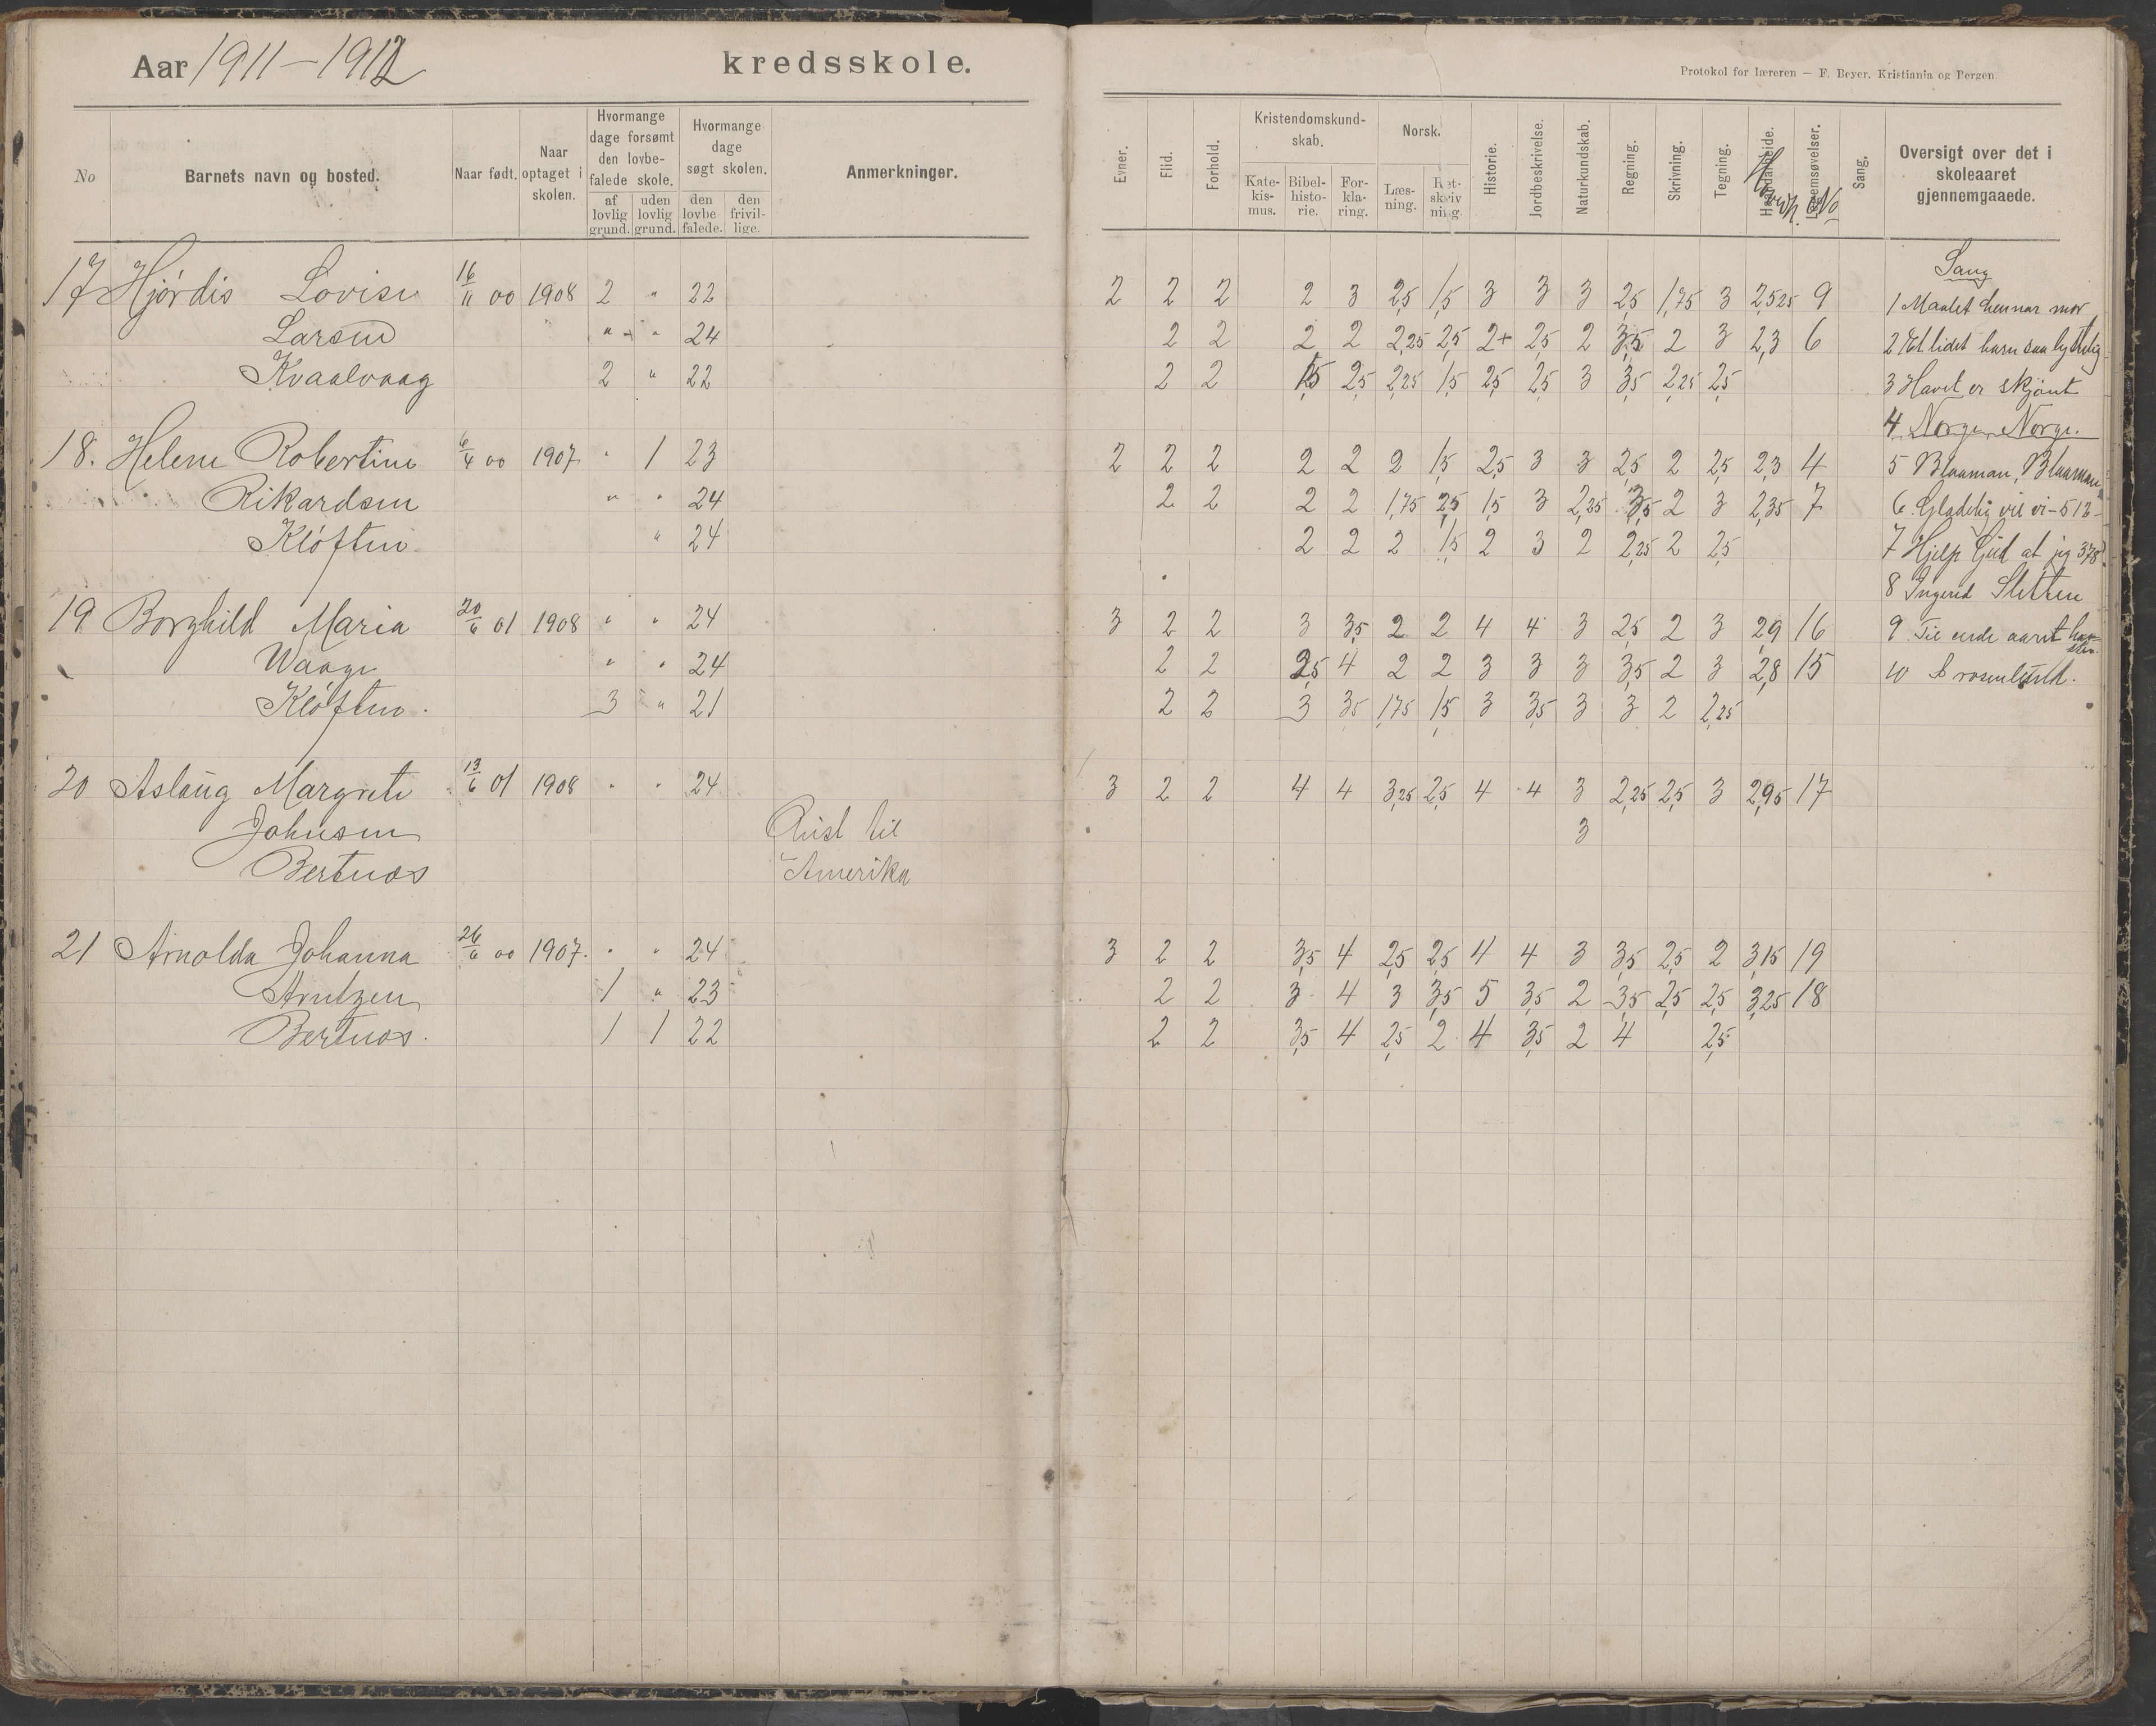 Aar 1911-1912 kredsskole.
Protokol for læreren — F. Beyer, Kristiania og Bergen.
No Barnets navn og bosted. Naar født. Naar optaget i skolen. Hvormange dage forsømt den lovbefalede skole. af lovlig grund. uden lovlig grund. Hvormange dage søgt skolen. den lovbefalede. den frivillige. Anmerkninger.
Evner. Flid. Forhold. Kristendomskundskab. Katekismus. Bibelhistorie. Forklaring. Norsk. Læsning. Retskrivning. Historie. Jordbeskrivelse. Naturkundskab. Regning. Skrivning. Tegning. Haandarbeide. Legemsøvelser. No Sang. Oversigt over det i skoleaaret gjennemgaaede.
Sang
17 Hjördis Lovise 16/11 00 1908 2 " 22 2 2 2 2 3 2,5 1,5 3 3 3 2,5 1,75 3 2,525 9 1 Maalet hennar mor
Larsen " " 24 2 2 2 2 2,25 2,5 2+ 2,5 2 3,5 2 3 2,3 6 2 Et lidet barn saa lystelig
Kvaalvaag 2 " 22 2 2 1,5 2,5 2,25 1,5 2,5 2,5 3 3,5 2,25 2,5 3 Havet er skjønt
4 Norge, Norge.
18. Helene Robertine 6/4 00 1907 " 1 23 2 2 2 2 2 2 1,5 2,5 3 3 2,5 2 2,5 2,3 4 5 Blaaman, Blaaman
Rikardsen " " 24 2 2 2 2 1,75 2,5 1,5 3 2,25 3,5 2 3 2,35 7 6. Gladelig vil vi - 512-
Klöften " 24 2 2 2 1,5 2 3 2 2,25 2 2,5 7 Hjelp Gud at jeg 378
8 Ingerid Sletten
19 Borghild Maria 20/6 01 1908 " " 24 3 2 2 3 3,5 2 2 4 4 3 2,5 2 3 2,9 16 9 Til ende aaret
Waage " " 24 2 2 2,5 4 2 2 3 3 3 3,5 2 3 2,8 15 10 I rosenlund.
Klöften. 3 " 21 2 2 3 3,5 1,75 1,5 3 3,5 3 3 2 2,25
20 Aslaug Margrete 13/6 01 1908 " " 24 3 2 2 4 4 3,25 2,5 4 4 3 2,25 2,5 3 2,95 17
Johnsen Reist til 3
Bertnæs Amerika
21 Arnolda Johanna 26/6 00 1907. " " 24 3 2 2 3,5 4 2,5 2,5 4 4 3 3,5 2,5 2 3,15 19
Arntzen 1 " 23 2 2 3 4 3 3,5 5 3,5 2 3,5 2,5 2,5 3,25 18
Bertnæs. 1 1 22 2 2 3,5 4 2,5 2 4 3,5 2 4 2,5